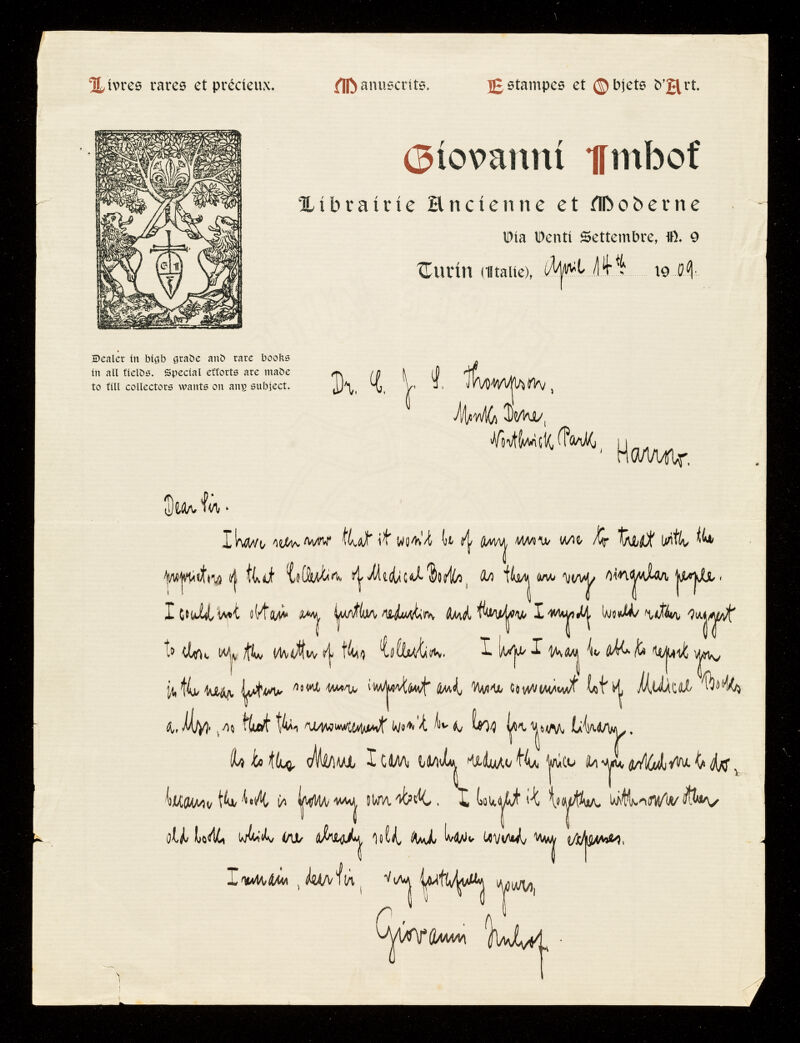 Livres rares et précieux. Manuscrits. Estampes et Objets d'Art.
Giovanni Imhof
Librairie Ancienne et Moderne
Via Venti Settembre, N. 9
Turin (Italie), April 14th 1909.
Dealer in high grade and rare books
in all fields. Special efforts are made
to fill collectors wants on any subject.
Dr. C. J. S. Thompson,
Monks Dene,
Northwick Park,
Harrow.
Dear Sir.
I have seen now that it won't be of any more use to treat with the
proprietors of that Collection of Medical Books, as they are very singular people.
I could not obtain any further reduction and therefore I myself would rather suggest
to close up the matter of this Collection. I hope I may be able to report you
in the near future some more important and more convenient lot of Medical Books
a. Mss, so that this renouncement won't be a loss for your library.
As to the Mesue I can easily reduce the price as you asked me to do,
because the book is from my own stock. I bought it together with some other
old books which are already sold and have covered my expenses.
I remain, dear Sir, very faithfully yours,
Giovanni Imhof.